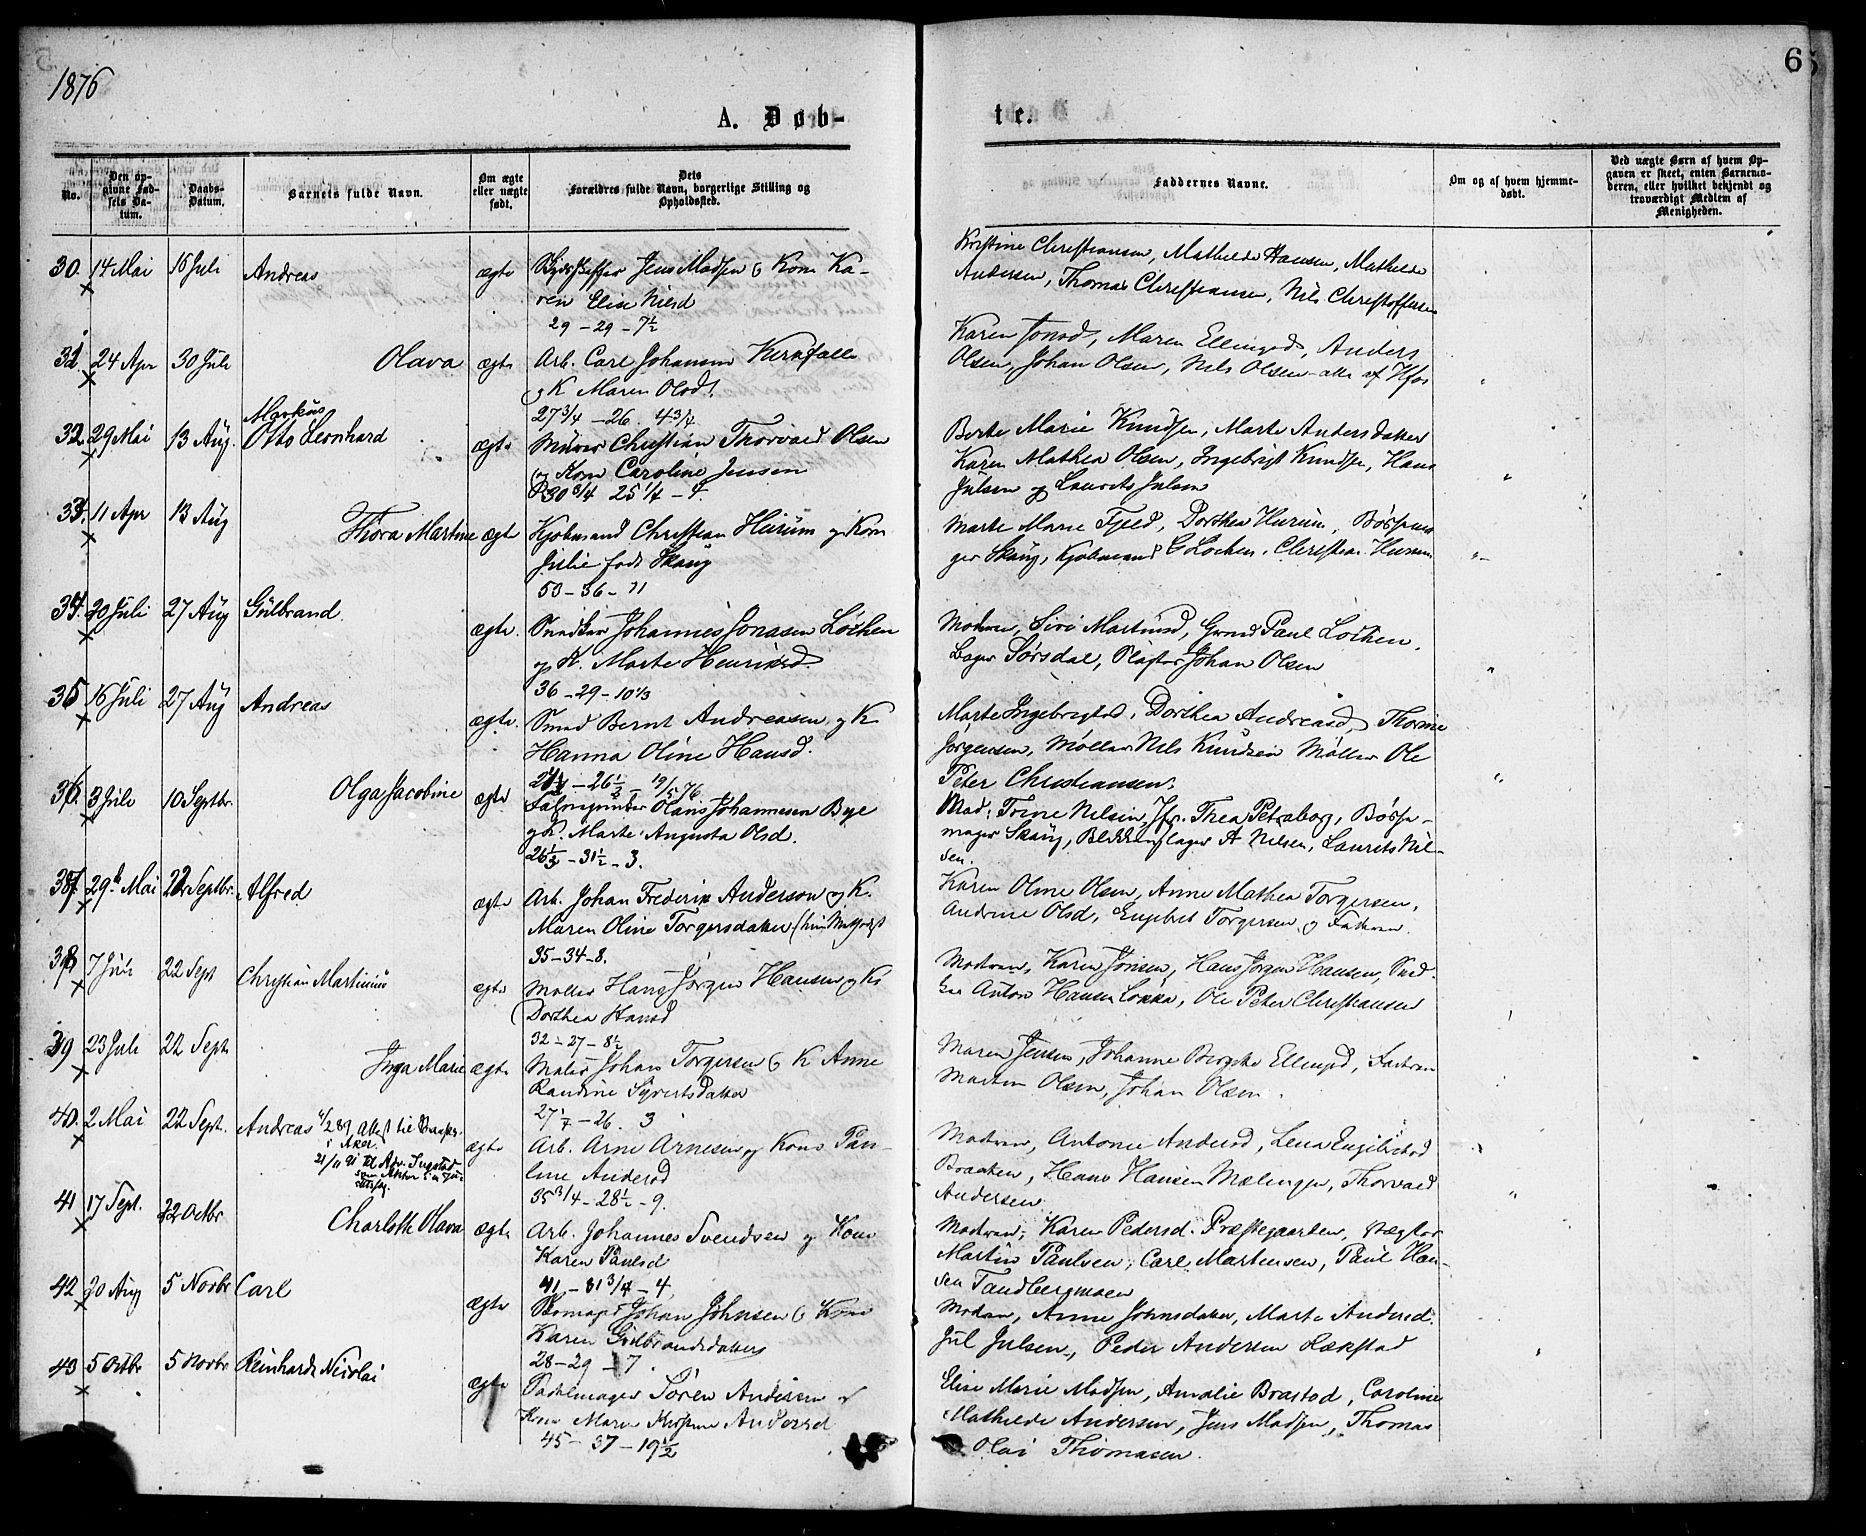 1876
6
A. Døb-
te.
No.
Den op-
givne Fød-
sels Da-
tum.
Daabs-
Datum.
Barnets fulde Navn.
Om ægte
eller uægte
født.
Dets
Forældres fulde Navn, borgerlige Stilling og
Opholdssted.
Faddernes Navne.
Om og af hvem hjemme-
døbt.
Ved uægte Børn af hvem Op-
gaven er skeet, enten Barnemo-
deren, eller hvilket bekjendt og
troværdigt Medlem af
Menigheden.
30. 14 Mai 16 Juli Andreas ægte Jens Madsen & Kone Ka-
ren Elise Nilsd
29 - 29 - 7½
Kristine Christiansen, Mathilde Hansen, Mathilde
Andersen, Thomas Christiansen, Nils Christoffersen
31. 24 Apr 30 Juli Olava ægte Arb. Carl Johansen
og K Maren Olsd.
27 3/4 - 26. 4 3/4
Karen Jonsd, Maren Ellingsd, Anders
Olsen, Johan Olsen, Nils Olsen alle af Hfos
32. 29 Mai 13 Aug. Markus
Otto Leonhard ægte Murer Christian Thorvald Olsen
og Kone Caroline Jensen
30 3/4 25 1/4 - 4.
Berte Marie Knudsen, Marte Andersdatter
Karen Mathea Olsen, Ingebrigt Knudsen, Hans
Julsen og Laurits Julsen
33. 11 Apr 13 Aug Thora Martine ægte Kjøbmand Christian Hurum og Kone
Julie født Skaug
53 - 36 - 11
Marte Marie Dorthea Hurum, Børsema
ger Skaug, Kjøbmand C Lochen, Christian Hurum
34. 20 Juli 27 Aug Gulbrand ægte. Snedker Johannes Jonasen Løchen
og K. Marte Henriksd.
36 - 29 - 10 1/3
Moderen, Siri Martinsd, Grmd Paul Løchen,
Bager Sørsdal, Johan Olsen
35 16 Juli 27 Aug Andreas ægte. Smed Bernt Andreasen og K
Hanna Oline Hansd.
- 26½ - 19/5 76
Marte Ingebrigtsd, Dorthea Andreasd, Thorine
Jørgensen, Møller Nils Knudsen Møller Ole
Peter Christiansen.
36. 3 Juli 10 Septbr. Olga Jacobine ægte Hans Johannesen Bye
og K. Marte Augusta Olsd.
26½ - 31½ - 3.
Mad: Trine Nielsen, Jfr. Thea Petraborg, Børse-
mager Skaug, Blikkenslager A Nilsen, Laurits Nil-
sen.
37. 29de Mai 22 Septbr. Alfred ægte Arb. Johan Frederik Anderson og K.
Maren Oline Torgersdatter
35 - 34 - 8.
Karen Oline Olsen, Anne Mathea Torgersen,
Andrine Olsd, Engebret Torgersen og Faderen.
38 7 Juli 22 Sept Christian Martinius ægte Møller Hans Jørgen Hansen og K
Dorthea Hansd
32 - 27 - 8½
Moderen, Karen Jonsen, Hans Jørgen Hansen, Sned-
ker Anton Hansen Løkka, Ole Peter Christiansen
39 23 Juli 22 Sept. Inga Marie ægte Maler Johan Torgersen & K Anne
Randine Syvertsdatter
27 1/7 - 26. 3
Maren Jensen, Johanne Birgitte Ellingsd, Faderen
Martin Olsen, Johan Olsen.
40. 2 Mai 22 Sept. Andreas
i Aker.
ægte Arb. Arne Arnesen og Kone Pau-
line Andersd
35 3/4 - 28½ - 9.
Moderen, Antonie Andersd, Lena Engebretsd
Braaten, Hans Hansen Mælingen, Thorvald
Andersen
41 17 Sept. 22 Octbr Charlotte Olava ægte Arb. Johannes Svendsen og Kone
Karen Paulsd
41 - 31 3/4 - 4
Moderen, Karen Pedersd. Præstegaarden, Slagter
Martin Paulsen, Carl Martinsen, Paul Han-
sen Tandbergmoen
42 20 Aug 5 Novbr Carl ægte Skomager Johan Johnsen & Kone
Karen Gulbrandsdatter
28 - 29 - 7
Moderen, Anne Johnsdatter, Marte Andersd.
Jul Julsen, Peder Andersen Hækstad
43 5 Octbr 5 Novbr Reinhardt Nicolai ægte Sadelmager Søren Andersen og
Kone Maren Kirstine Andersd
45 - 37 - 19½
Elise Marie Madsen, Amalie Brastad, Caroline
Mathilde Andersen, Jens Madsen, Thomas
Olai Thomasen.